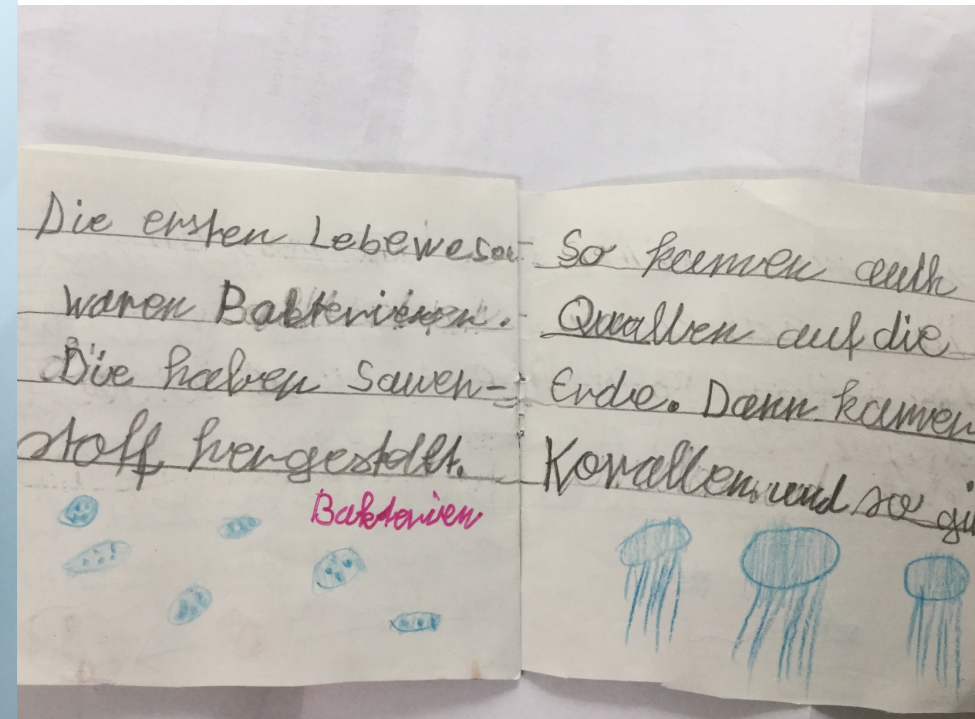 Die ersten Lebewesen
waren Bakterien.
Die haben Sauer-
stoff hergestellt.
Bakterien
So kamen auch
Quallen auf die
Erde. Dann kamen
Korallen und so